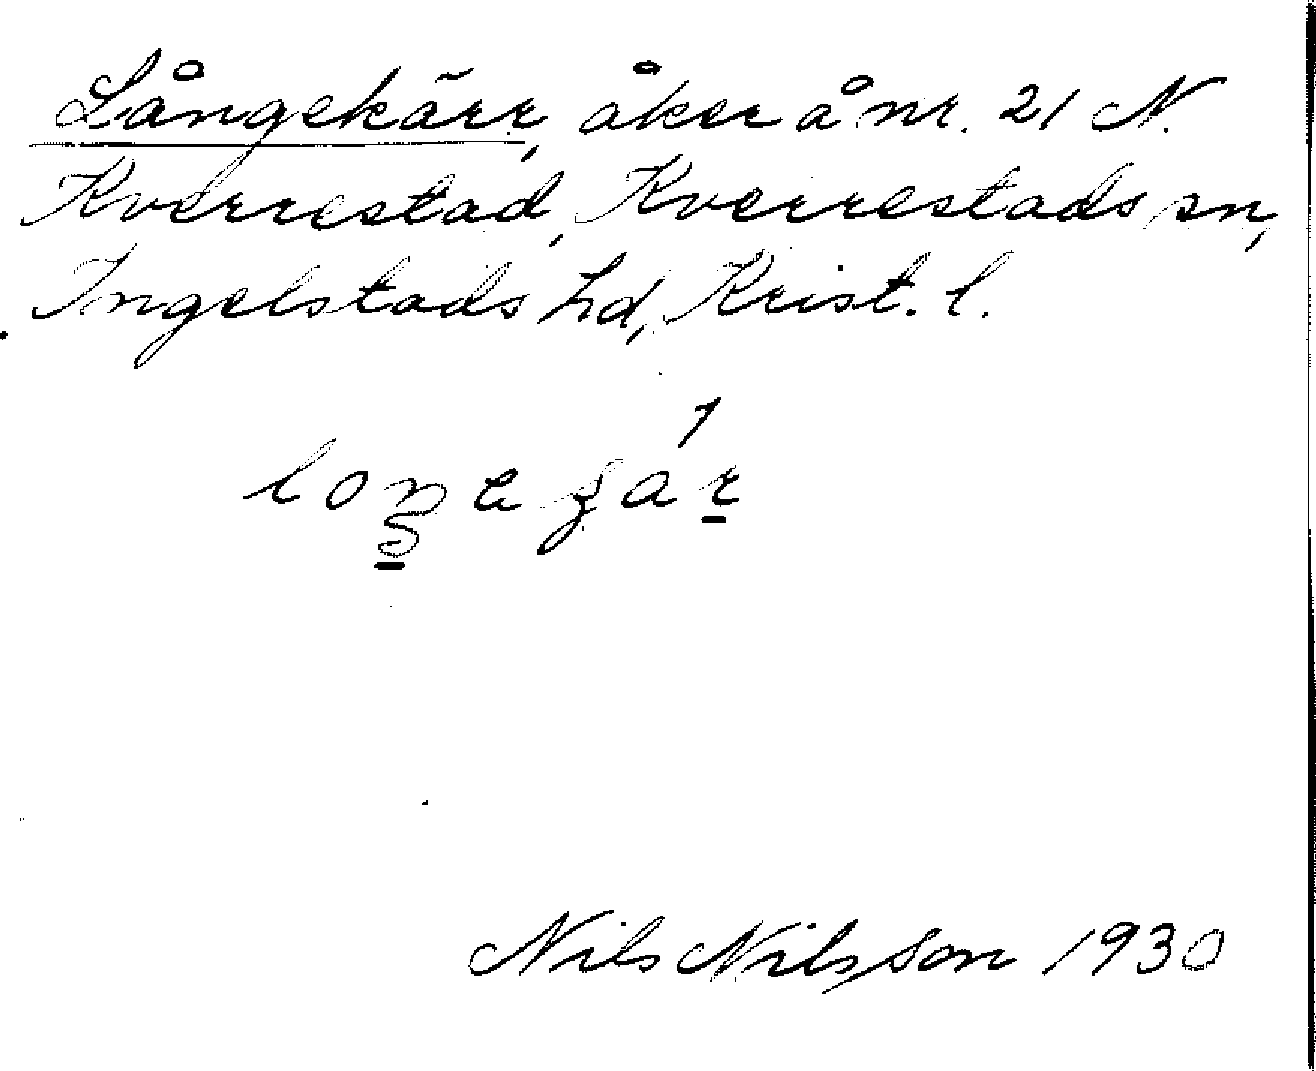 Långekärr, åker å nr. 21 N.
Kverrestad, Kverrestads sn,
Ingelstads hd, Krist. l.
Nils Nilsson 1930